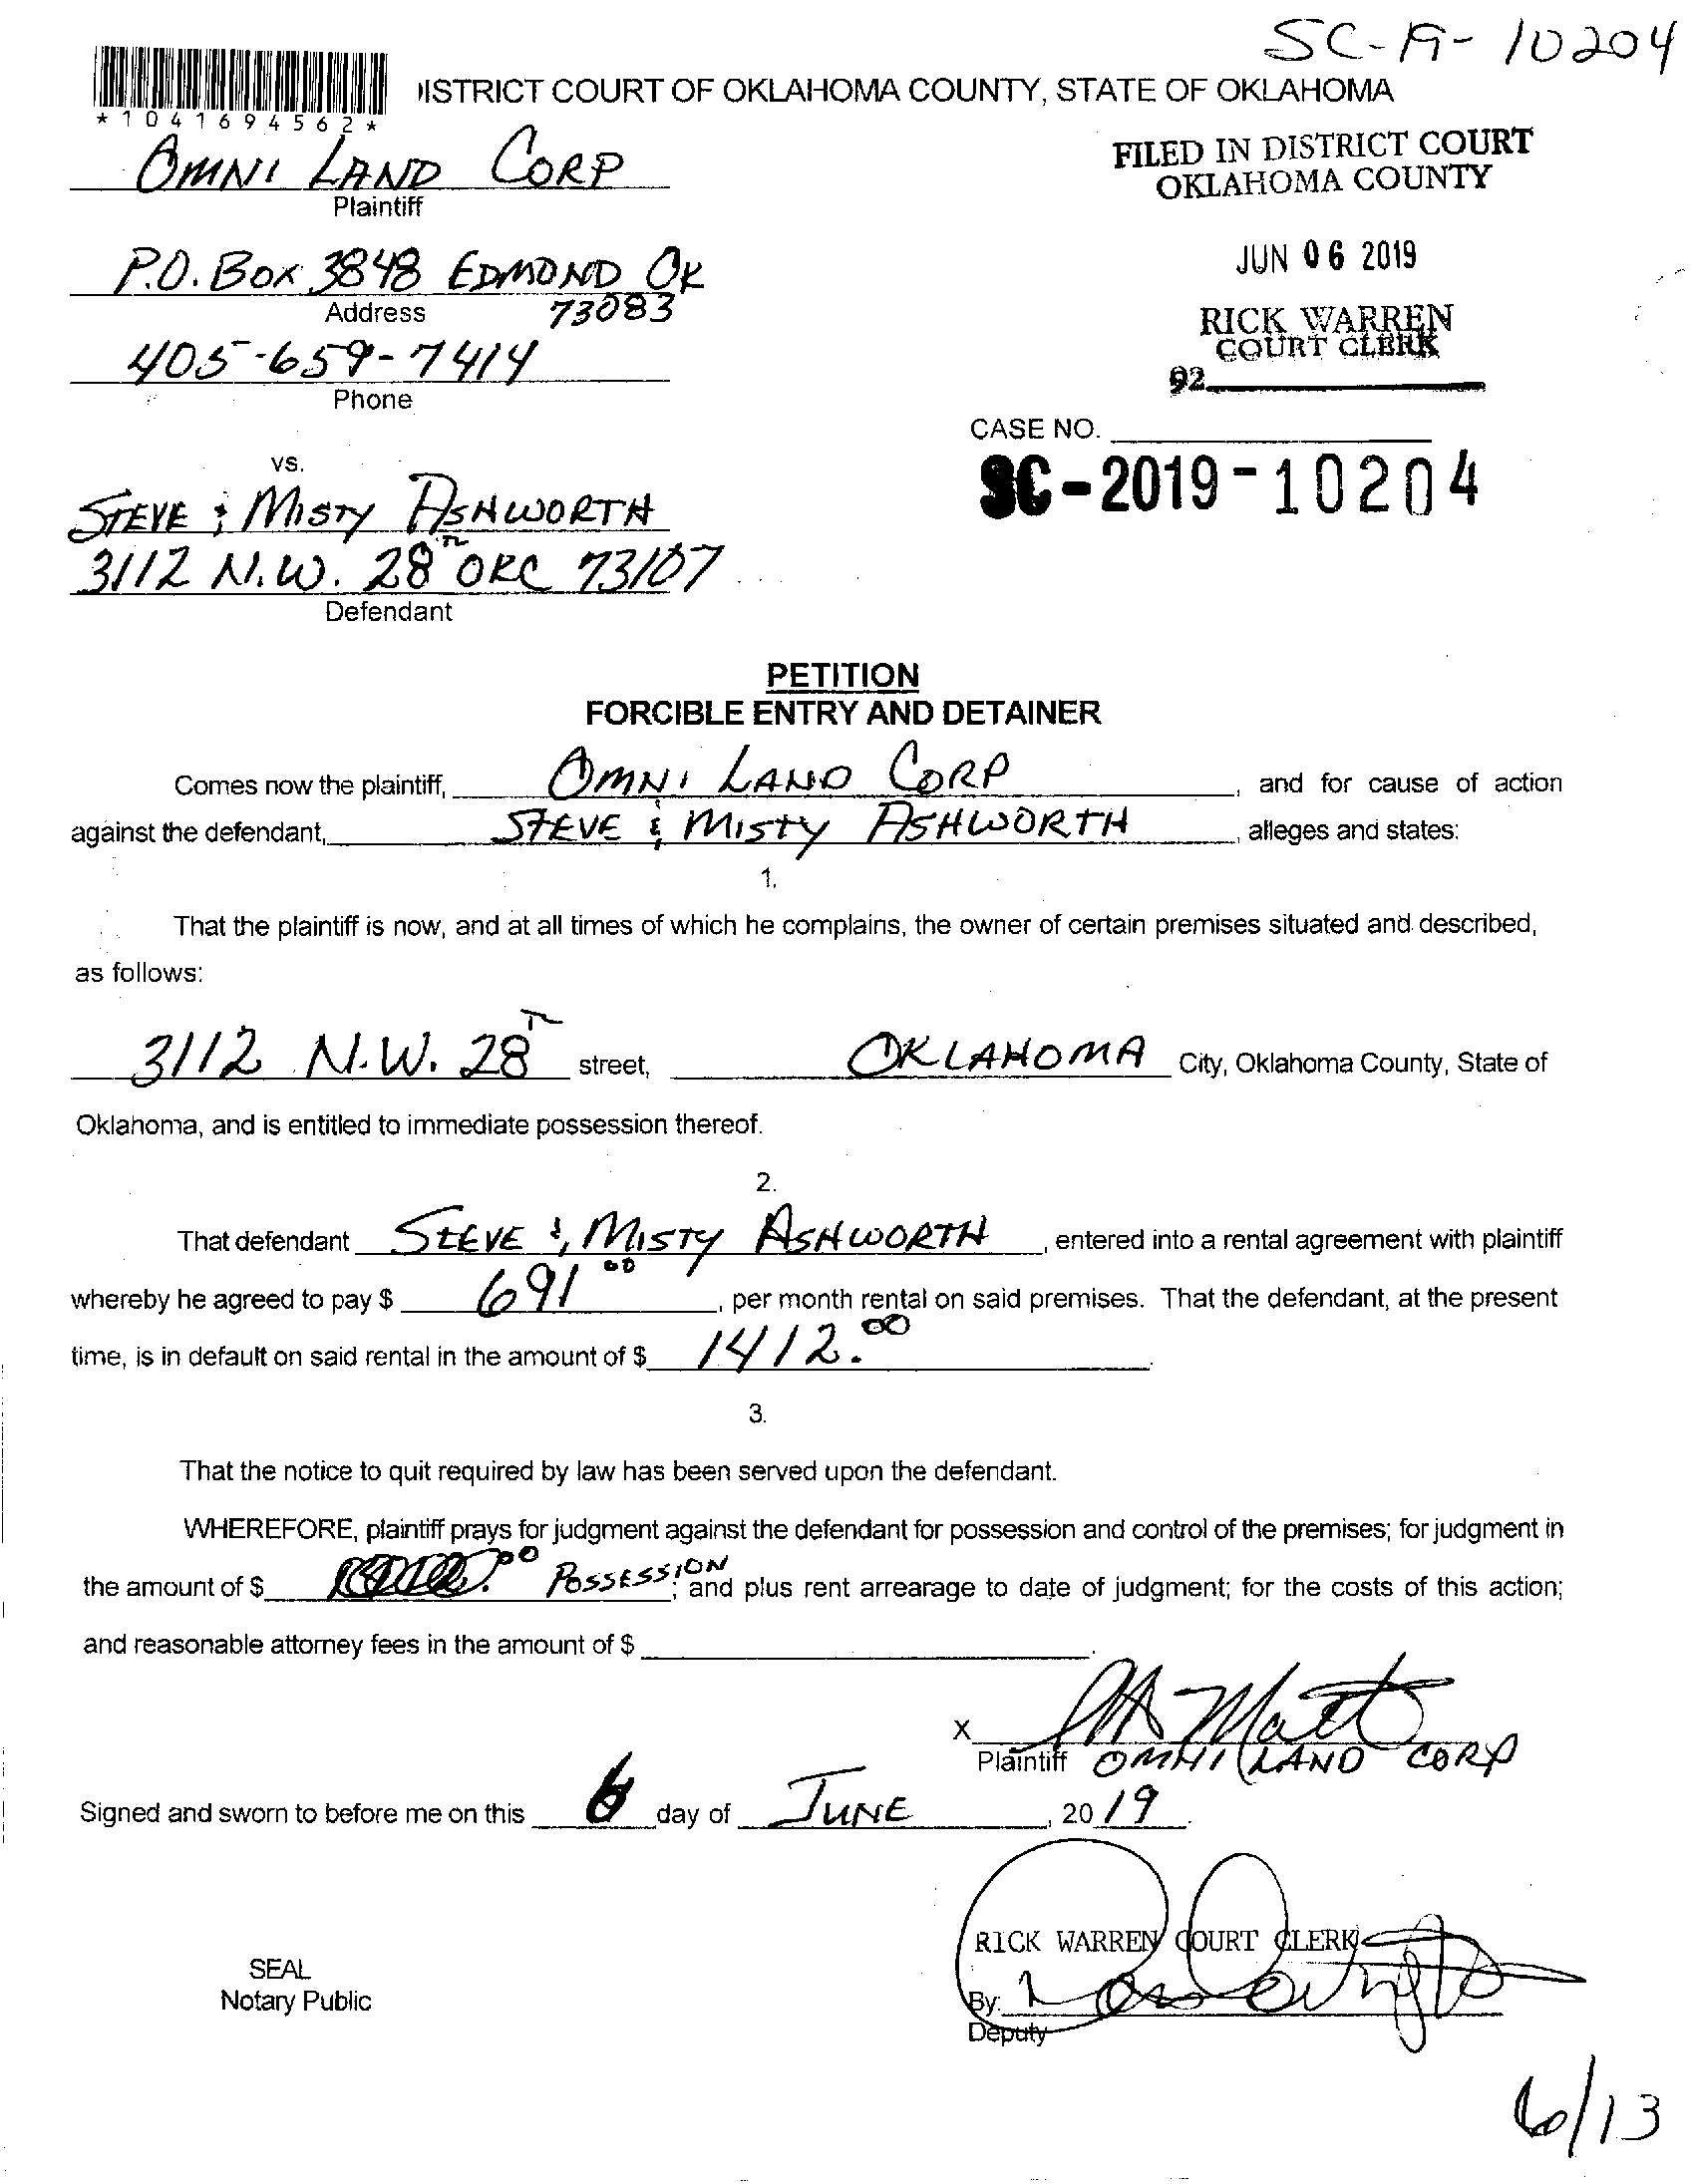 SC-19-10204
*1041694562*
ISTRICT COURT OF OKLAHOMA COUNTY, STATE OF OKLAHOMA
OMNI LAND CORP
Plaintiff
FILED IN DISTRICT COURT
OKLAHOMA COUNTY
P.O. BOX 3848 EDMOND OK
73083
Address
JUN 06 2019
405-659-7414
Phone
RICK WARREN
COURT CLERK
92
CASE NO.
SC-2019-10204
vs.
STEVE & MISTY ASHWORTH
3112 N.W. 28TH OKC 73107
Defendant
PETITION
FORCIBLE ENTRY AND DETAINER
Comes now the plaintiff, OMNI LAND CORP, and for cause of action
against the defendant, STEVE & MISTY ASHWORTH, alleges and states:
1.
That the plaintiff is now, and at all times of which he complains, the owner of certain premises situated and described,
as follows:
3112 N.W. 28TH street, OKLAHOMA City, Oklahoma County, State of
Oklahoma, and is entitled to immediate possession thereof.
2.
That defendant STEVE & MISTY ASHWORTH, entered into a rental agreement with plaintiff
whereby he agreed to pay $ 691 00, per month rental on said premises. That the defendant, at the present
time, is in default on said rental in the amount of $ 1412.00.
3.
That the notice to quit required by law has been served upon the defendant.
WHEREFORE, plaintiff prays for judgment against the defendant for possession and control of the premises; for judgment in
the amount of $ .00 POSSESSION; and plus rent arrearage to date of judgment; for the costs of this action;
and reasonable attorney fees in the amount of $ .
X
Plaintiff OMNI LAND CORP
Signed and sworn to before me on this 6 day of JUNE, 20 19.
RICK WARREN COURT CLERK
SEAL
Notary Public
By:
Deputy
6/13